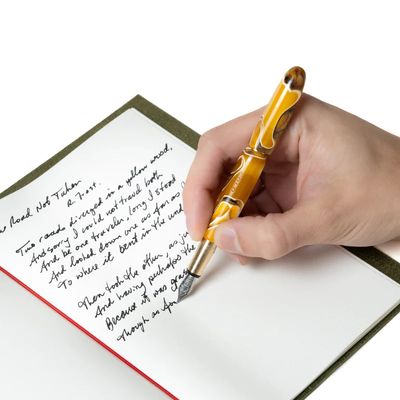 Road Not Taken
R. Frost
Two roads diverged in a yellow wood,
And sorry I could not travel both
And be one traveler, long I stood
And looked down one as far as I
To where it bent in the und
Then took the other, as j
And having perhaps the
Because it was gras
Though as for